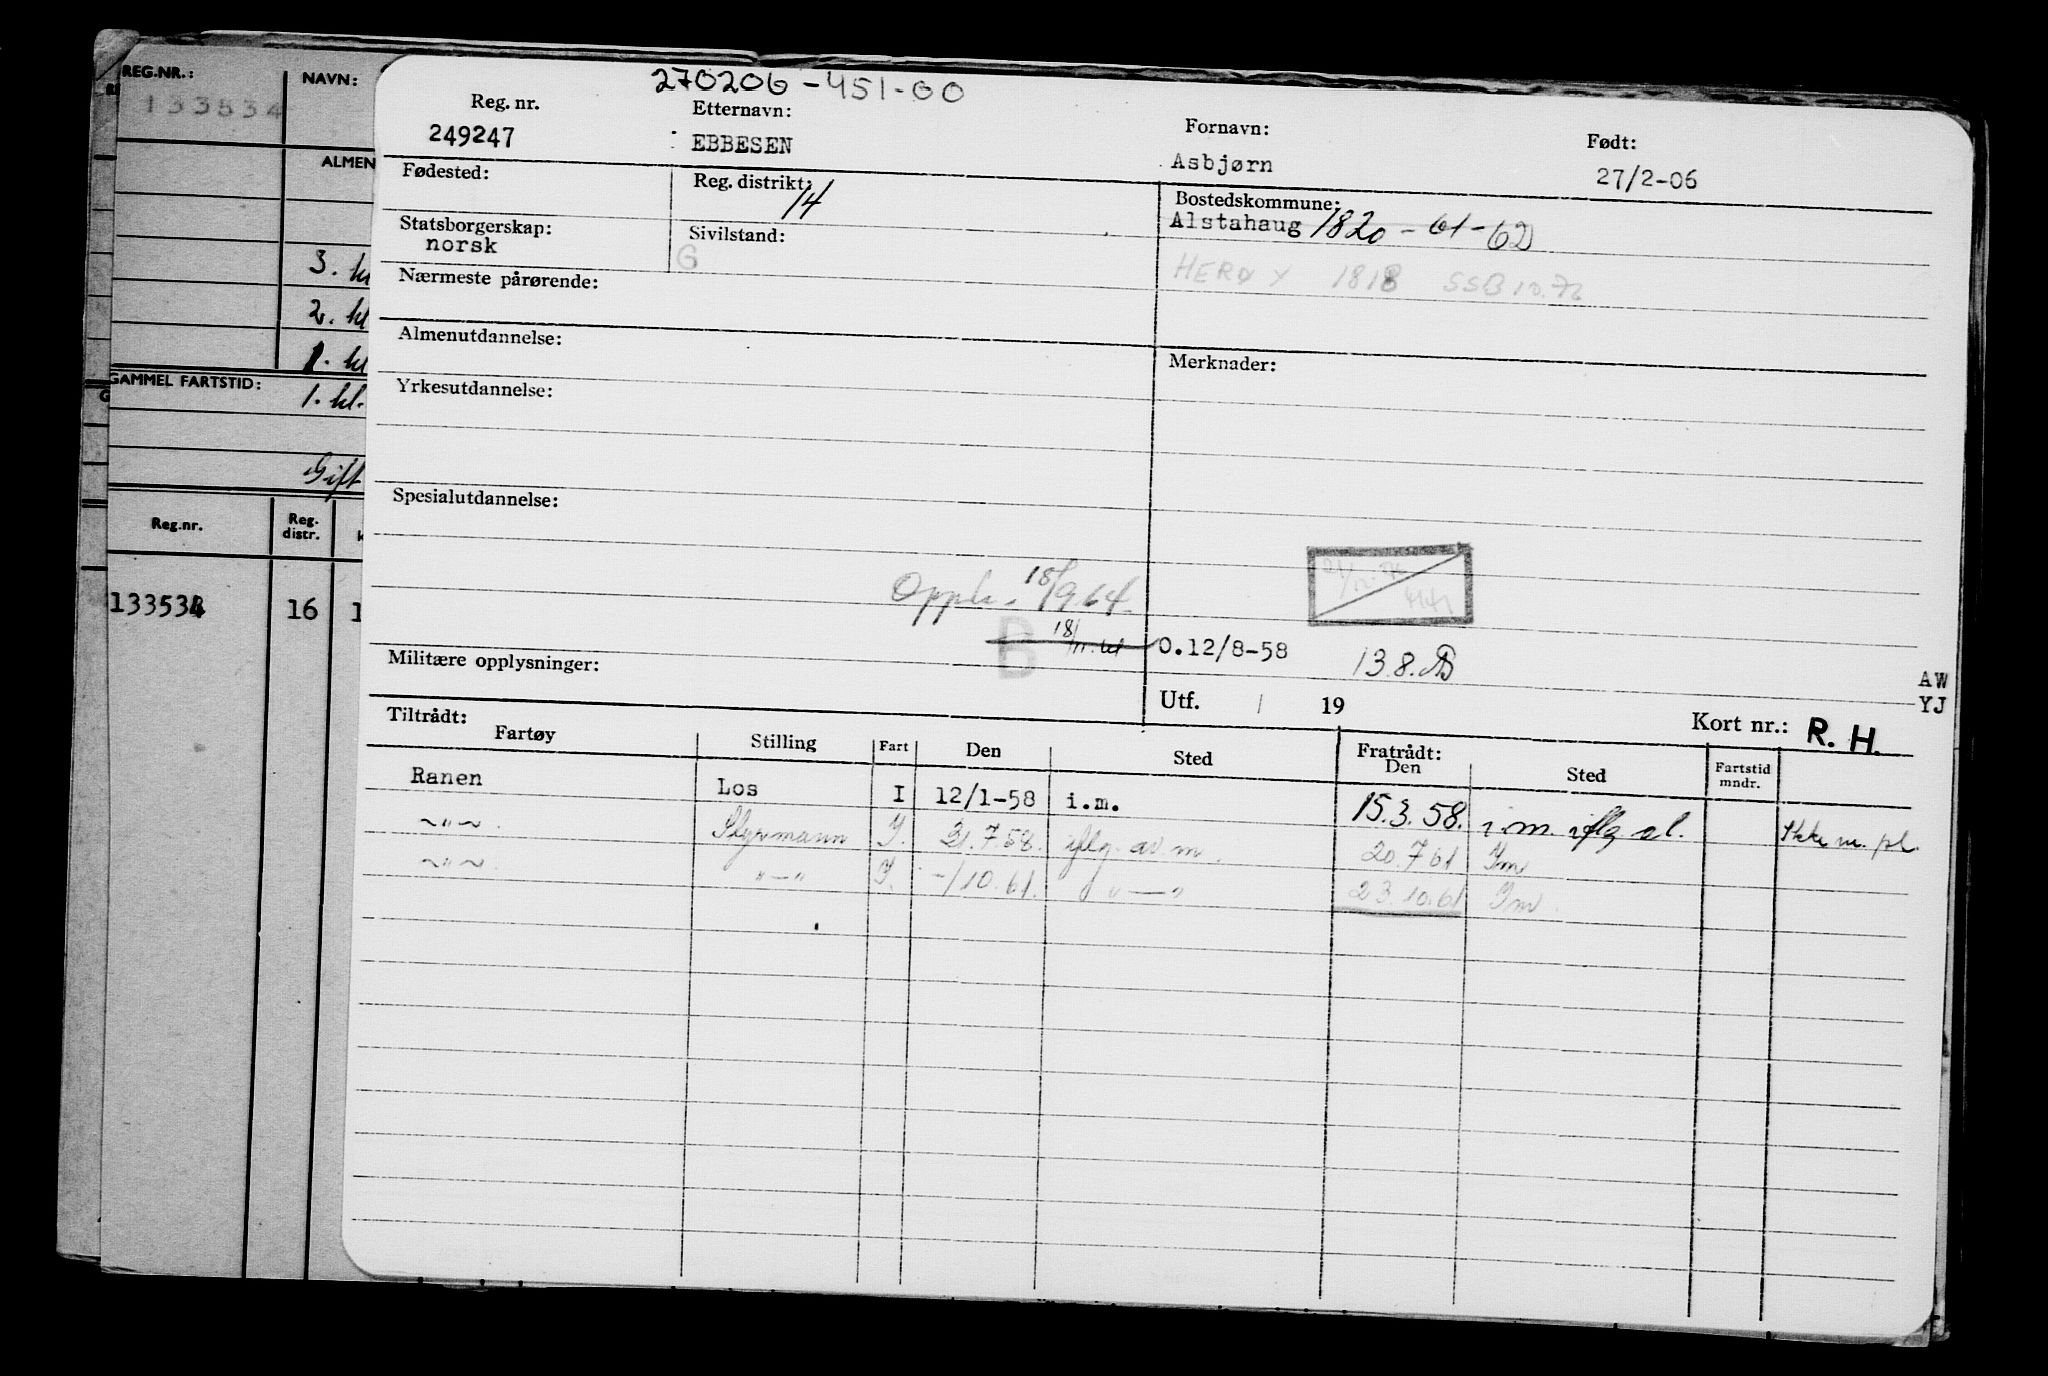 REG.NR.:
133534
NAVN:
ALMEN
3. kl
2. kl
1. kl
GAMMEL FARTSTID:
1. kl.
Gift
Reg.nr.
Reg. distr.
133534
16
1
270206-451-00
Reg. nr.
Etternavn:
Fornavn:
Født:
249247
EBBESEN
Asbjørn
27/2-06
Fødested:
Reg. distrikt:
14
Bostedskommune:
Alstahaug 1820 - 61-62
Statsborgerskap:
norsk
Sivilstand:
G
HERØY 1818 SSB 10.72
Nærmeste pårørende:
Almenutdannelse:
Merknader:
Yrkesutdannelse:
Spesialutdannelse:
18/9.64.
B
18/11.61
O.12/8-58
13.8.
Militære opplysninger:
Utf. / 19
AW
YJ
Kort nr.: R. H.
Tiltrådt:
Fartøy
Stilling
Fart
Den
Sted
Fratrådt:
Den
Sted
Fartstid mndr.
Ranen
Los
I
12/1-58
i.m.
15.3.58.
i.m. iflg al.
Ikke m. pl.
~"~.
Styrmann
I.
21.7.58.
iflg. av m.
20.7 61
Im
~"~.
"—"
I.
-/10.61.
"—"
23.10.61
Im.